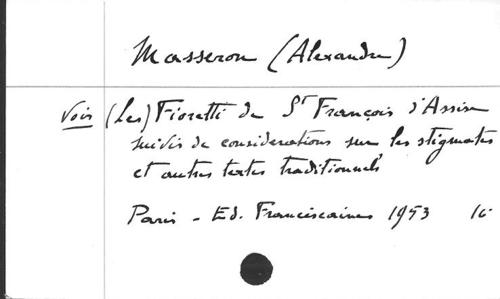 Masseron (Alexandre)
Voir (Les) Fioretti de St François d'Assise
suivis de considérations sur les stigmates
et autres textes traditionnels
Paris - Ed. Franciscaines 1953 16